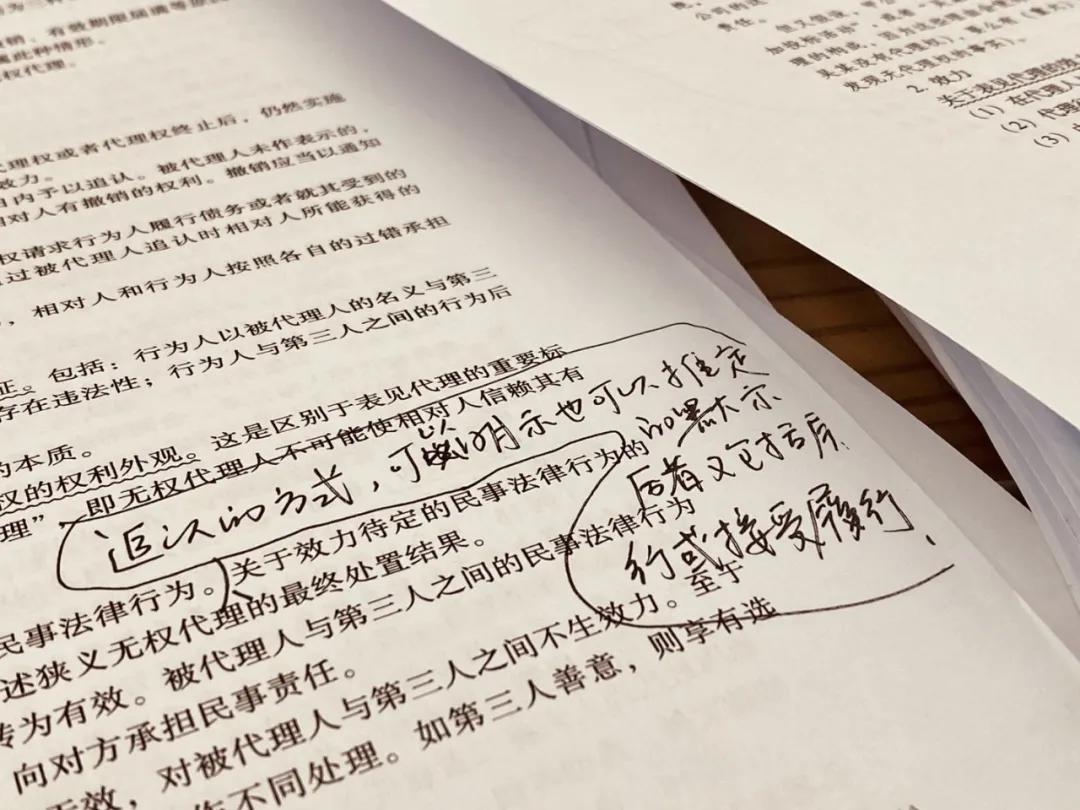 销、有效期限届满等
属此种情形。
无权代理。
代理权或者代理权终止后，仍然实施
效力。
日内予以追认。被代理人未作表示的，
相对人有撤销的权利。撤销应当以通知
权请求行为人履行债务或者就其受到的
过被代理人追认时相对人所能获得的
，相对人和行为人按照各自的过错承担
征。包括：行为人以被代理人的名义与第三
存在违法性；行为人与第三人之间的行为后
的本质。
权的权利外观。这是区别于表见代理的重要标
理”，即无权代理人不可能使相对人信赖其有
追认的方式，可以明示也可以推定
的默示
后者又包括
约或接受履行.
民事法律行为。关于效力待定的民事法律行为的
述狭义无权代理的最终处置结果。
转为有效。被代理人与第三人之间的民事法律行为
向对方承担民事责任。
无效，对被代理人与第三人之间不生效力。至于
作不同处理。如第三人善意，则享有选
公司的
责任。
发现无代理权的事实）。
2. 效力
关于表见代理的效
（1）在代理人
（2）代理
（3）